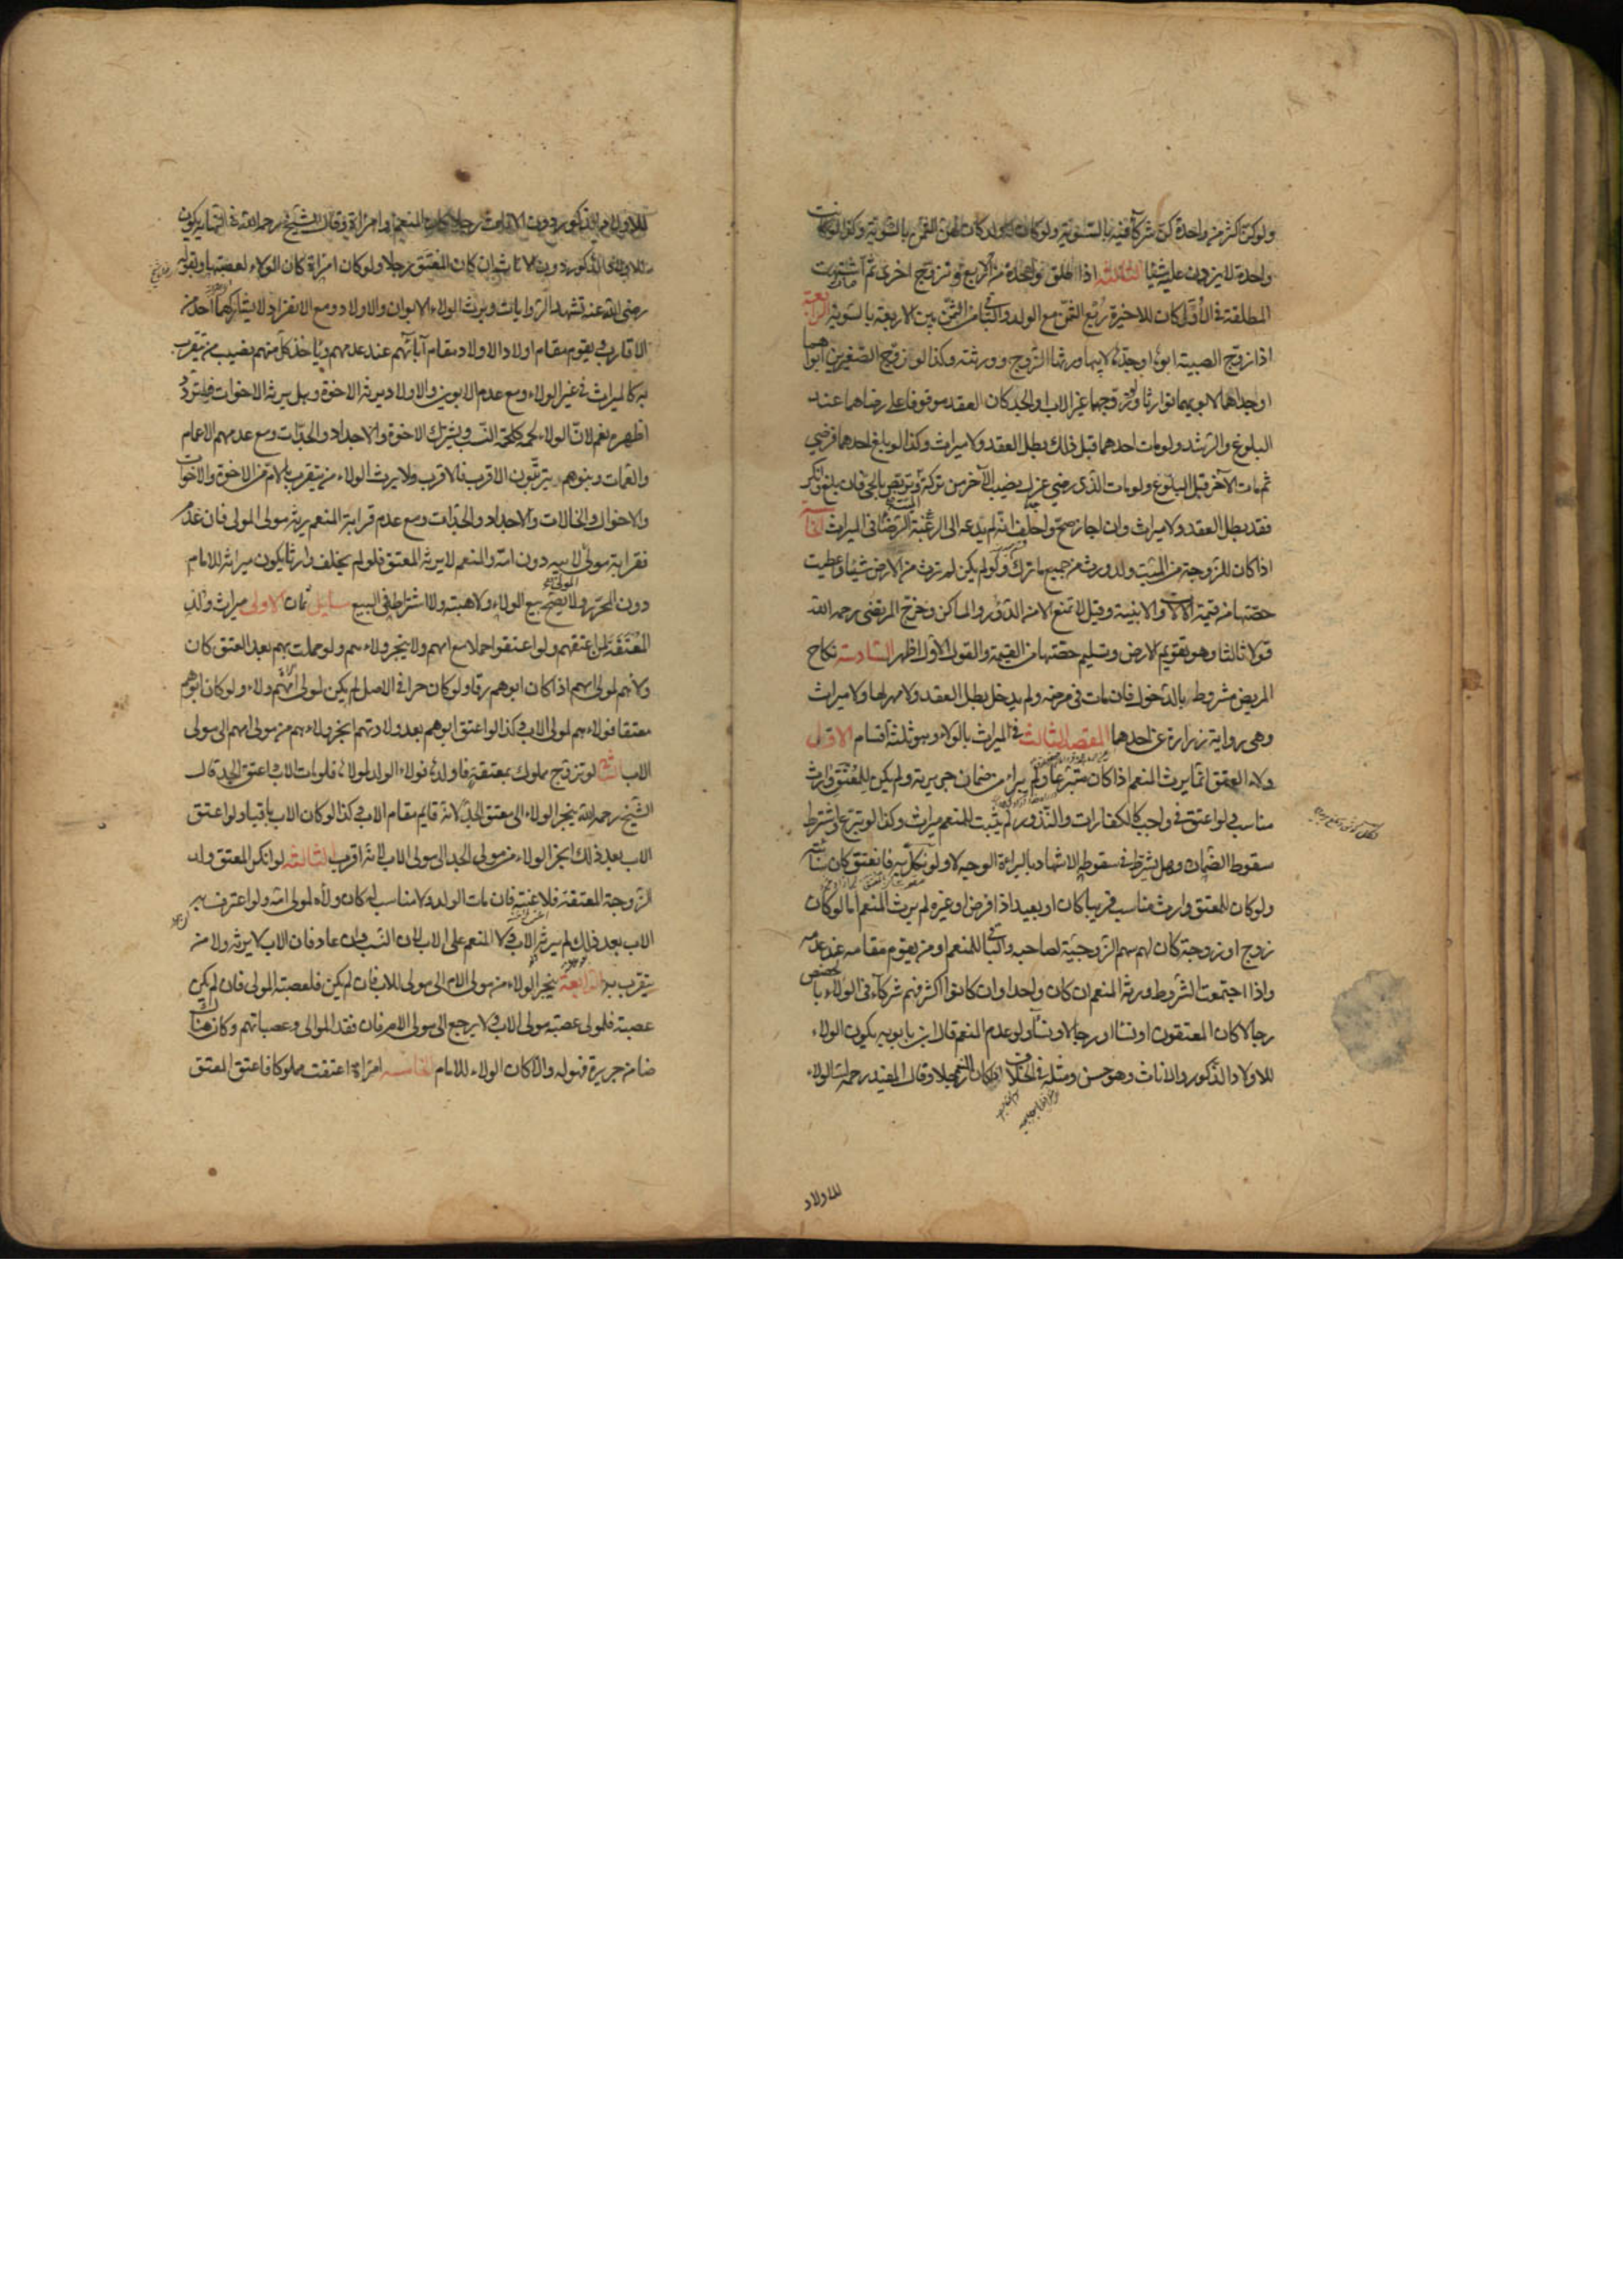 ولو كن اكثر من واحدة كن شركاء فيه بالسوية ولو كان له ولد كان لهن الثمن بالسوية وكذا لو كانت
واحدة لا يزدن عليه شيئا الثالثة اذا طلق واحدة من اربع وتزوج اخرى ثم اشتبهت
المطلقة في الاول كان للاخيرة ربع الثمن مع الولد والباقي من الثمن بين الاربعة بالسوية الرابعة
اذا زوج الصبية ابوها او جدها لابيها ورثها الزوج وورثته وكذا لو زوج الصغيرين ابواهما
او جداهما لابويهما توارثا ولو زوجهما غير الاب والجد كان العقد موقوفا على رضاهما عند
البلوغ والرشد ولو مات احدهما قبل ذلك بطل العقد ولا ميراث وكذا لو بلغ احدهما فرضي
ثم مات الآخر قبل البلوغ ولو مات الذي رضي عزل نصيب الآخر من تركته وتربص بالحي فان بلغ وانكر
فقد بطل العقد ولا ميراث وان اجاز صح واحلف انه لم يدعه الى الرضا الرغبة في الميراث الخامسة
اذا كان للزوجة من الميت ولد ورثت من جميع ما ترك ولو لم يكن لم ترث من الارض شيئا واعطيت
حصتها من قيمة الآلات والابنية وقيل لا تمنع الا من الدور والمساكن وخرج المرتضى رحمه الله
قولا ثالثا وهو تقويم الارض وتسليم حصتها من القيمة والقول الاول اظهر السادسة نكاح
المريض مشروط بالدخول فان مات في مرضه ولم يدخل بطل العقد ولا مهر لها ولا ميراث
وهي رواية زرارة عن احدهما المقصد الثالث في الميراث بالولاء وهو ثلثة اقسام الاول
ولاء العتق انما يرث المنعم اذا كان متبرعا ولم يبرأ من ضمان جريرته ولم يكن للمعتق وارث
مناسب فلو اعتق في واجب كالكفارات والنذور لم يثبت للمنعم ميراث وكذا لو تبرع واشترط
سقوط الضمان وهل يشترط في سقوطه الاشهاد بالبراءة الوجه لا ولو نكل به فانعتق كان سائبة
ولو كان للمعتق وارث مناسب قريبا كان او بعيدا ذا فرض او غيره لم يرث المنعم اما لو كان
زوج او زوجة كان لهم سهم الزوجية لصاحبه والباقي للمنعم او من يقوم مقامه عند عدمه
واذا اجتمعت الشروط ورثه المنعم ان كان واحدا وان كانوا اكثر فهم شركاء في الولاء بالحصص
رجالا كان المعتقون او نساء او رجالا ونساء ولو عدم المنعم قال ابن بابويه يكون الولاء
للاولاد الذكور والاناث وهو حسن ومثله في الخلاف اذا كان المنعم رجلا وقال المفيد رحمه الله الولاء
للاولاد
للاولاد الذكور دون الاناث رجلا كان المنعم او امرأة وقال الشيخ رحمه الله في النهاية يكون
للاولاد الذكور دون الاناث ان كان المعتق رجلا ولو كان امرأة كان الولاء لعصبتها وبقوله
رضي الله عنه تشهد الروايات ويرث الولاء الابوان والاولاد ومع الانفراد لا يشاركهما احد من
الاقارب ويقوم مقام اولاد الاولاد مقام آبائهم عند عدمهم ويأخذ كل منهم نصيب من يتقرب
به كالميراث في غير الولاء ومع عدم الابوين والاولاد يرثه الاخوة وهل يرثه الاخوات فيه تردد
اظهره نعم لان الولاء لحمة كلحمة النسب ويشترك الاخوة والاجداد والجدات ومع عدمهم الاعمام
والعمات وبنوهم يترتبون الاقرب فالاقرب ولا يرث الولاء من يتقرب بالام من الاخوة والاخوات
والاخوال والخالات والاجداد والجدات ومع عدم قرابة المنعم يرثه مولى المولى فان عدم
فقرابة مولى لابيه دون امه والمنعم لا يرثه المعتق فلو لم يخلف وارثا يكون ميراثه للامام
دون المحرر ولا يصح بيع الولاء ولا هبته ولا اشتراطه في البيع مسايل ثمان الاولى ميراث ولد
المعتقة لمن اعتقهم ولو اعتقوا حملا مع امهم ولا ينجر ولاءهم ولو حملت بهم بعد العتق كان
ولاءهم لمولى امهم اذا كان ابوهم رقا ولو كان حرا في الاصل لم يكن لمولى امهم ولاء ولو كان ابوهم
معتقا فولاءهم لمولى الاب وكذا لو اعتق ابوهم بعد ولادتهم انجر ولاءهم من مولى امهم الى مولى
الاب الثانية لو تزوج مملوك بمعتقة فاولدها فولاء الولد لمولاها فلو مات الاب واعتق الجد قال
الشيخ رحمه الله ينجر الولاء الى معتق الجد لانه قايم مقام الاب وكذا لو كان الاب باقيا ولو اعتق
الاب بعد ذلك انجر الولاء من مولى الجد الى مولى الاب لانه اقرب الثالثة لو انكر المعتق ولد
الزوجة المعتقة فلاعنته فان مات الولد ولا مناسب له كان ولاءه لمولى امه ولو اعترف به
الاب بعد ذلك لم يرثه الاب ولا المنعم على الاب لان النسب وان عاد فان الاب لا يرثه ولا من
يتقرب به الرابعة ينجر الولاء من مولى الام الى مولى الاب فان لم يكن فلعصبة المولى فان لم يكن
عصبة فلمولى عصبة مولى الاب ولا يرجع الى مولى الام فان فقد الموالي وعصباتهم وكان هناك
ضامن جريرة فهو له والا كان الولاء للامام الخامسة امرأة اعتقت مملوكا فاعتق المعتق